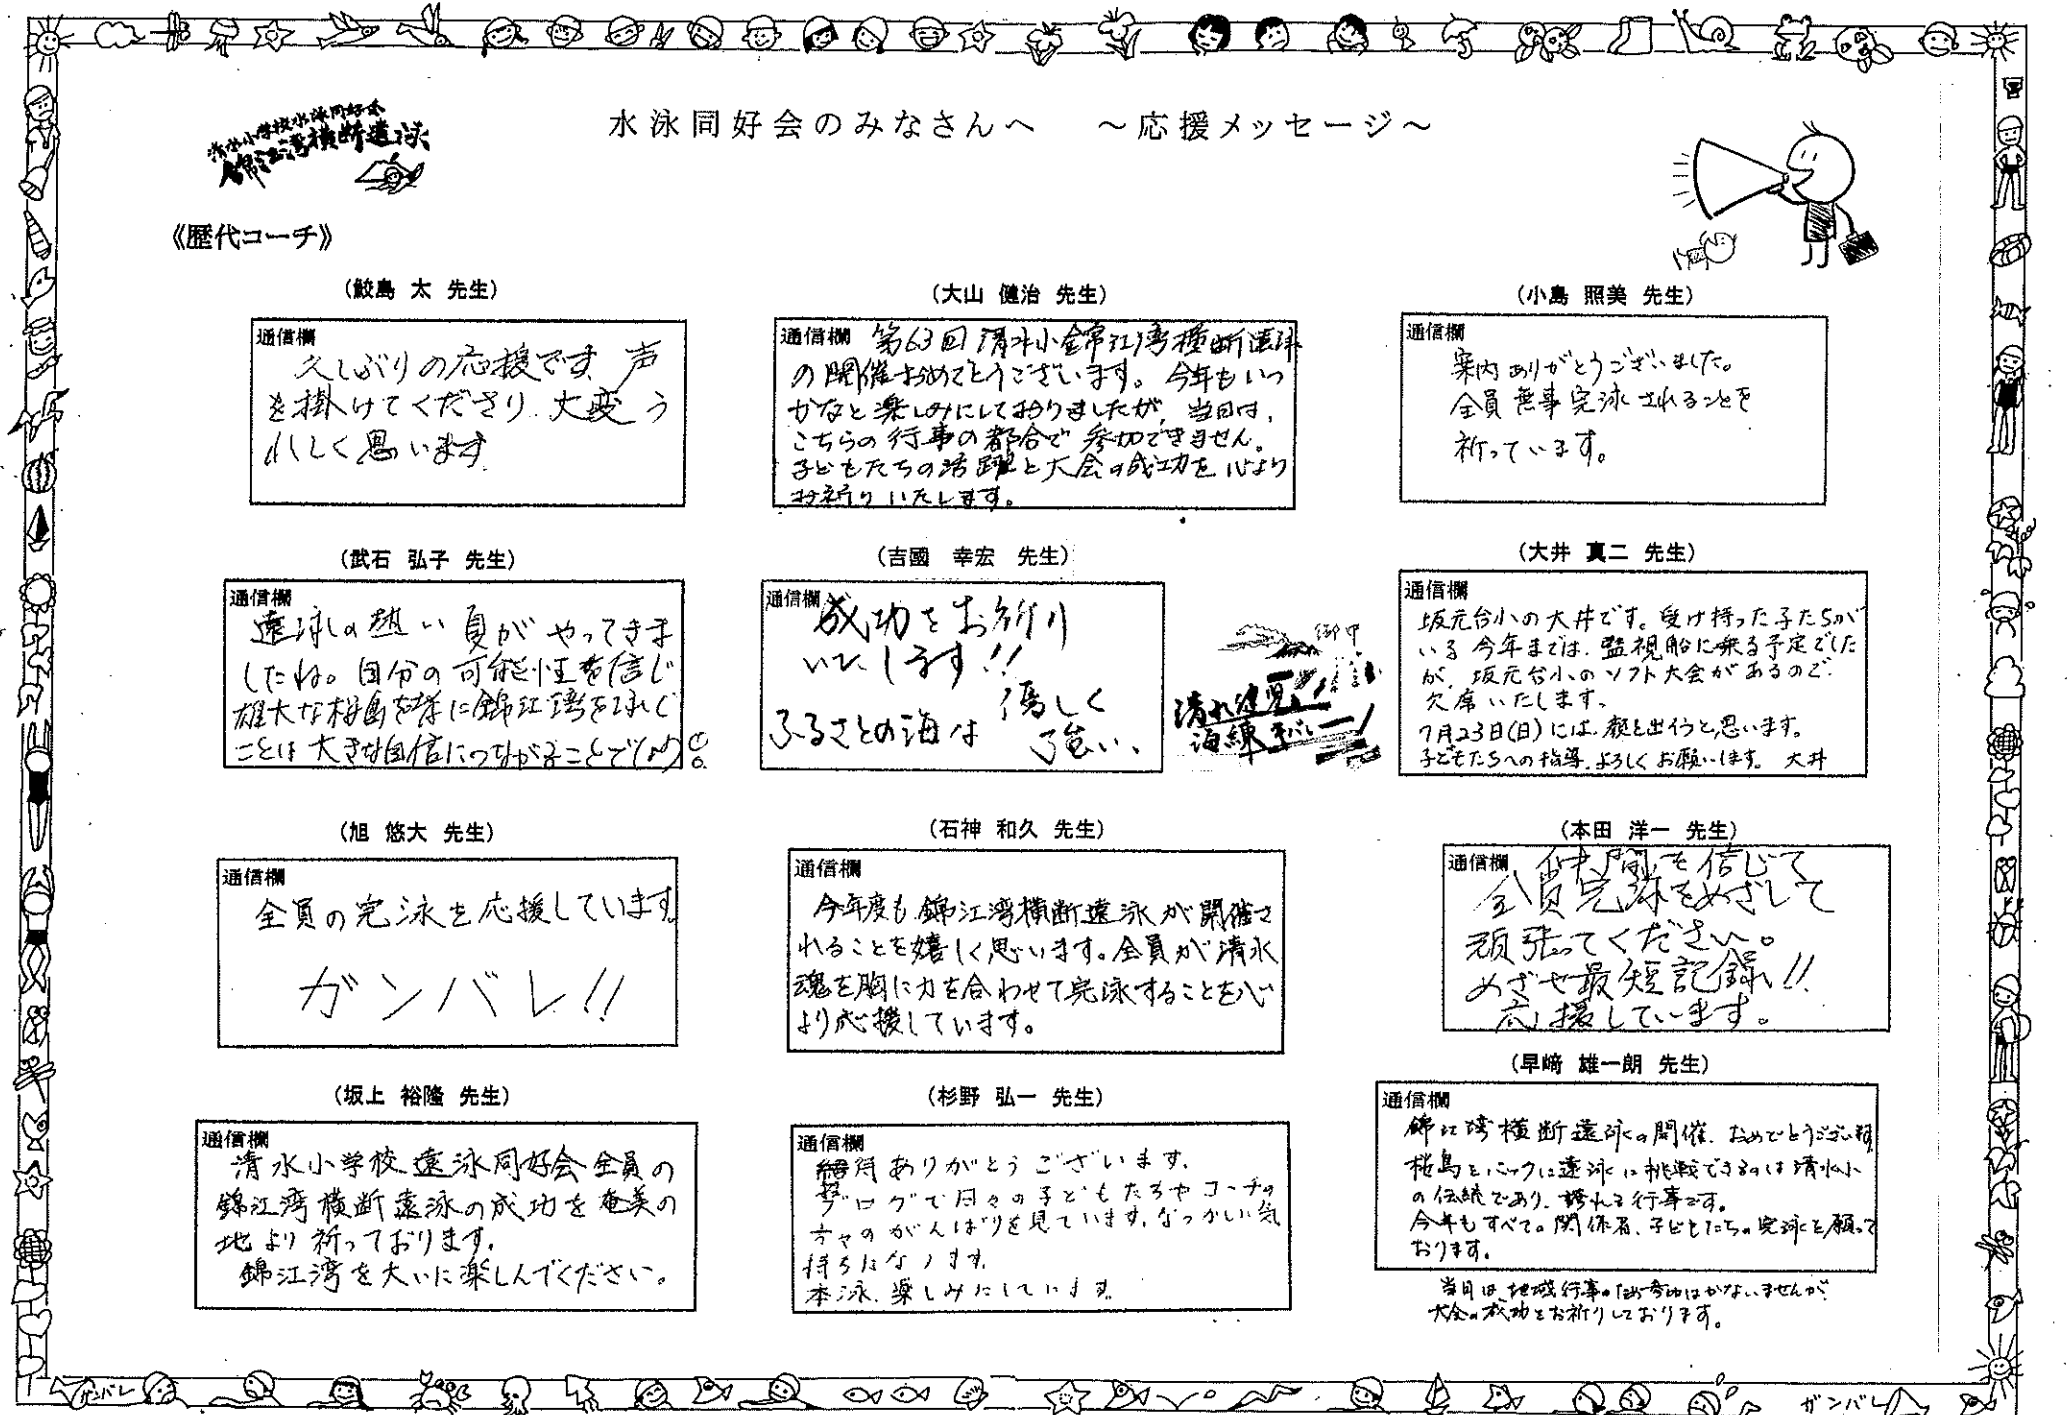 水泳同好会のみなさんへ ～応援メッセージ～
清水小学校水泳同好会
錦江湾横断遠泳
《歴代コーチ》
（鮫島 太 先生）
通信欄
久しぶりの応援です 声
を掛けてくださり、大変う
れしく思います
（大山 健治 先生）
通信欄 第63回 清水小錦江湾横断遠泳
の開催おめでとうございます。今年もいつ
かなと楽しみにしておりましたが、当日は、
こちらの行事の都合で参加できません。
子どもたちの活躍と大会の成功を心より
お祈りいたします。
（小島 照美 先生）
通信欄
案内ありがとうございました。
全員無事完泳されることを
祈っています。
（武石 弘子 先生）
通信欄
遠泳の熱い夏がやってきま
したね。自分の可能性を信じ
雄大な桜島を様に錦江湾を泳ぐ
ことは大きな自信につながることでしょう
（吉國 幸宏 先生）
通信欄 成功をお祈り
いたします!!
ふるさとの海は 優しく
強い、
（大井 真二 先生）
通信欄
坂元台小の大井です。受け持った子たちが
いる今年までは、監視船に乗る予定でした
が、坂元台小のソフト大会があるので、
欠席いたします。
7月23日(日)には、顔を出そうと思います。
子どもたちへの指導、よろしくお願いします。 大井
（旭 悠大 先生）
通信欄
全員の完泳を応援しています。
ガンバレ!!
（石神 和久 先生）
通信欄
今年度も錦江湾横断遠泳が開催さ
れることを嬉しく思います。全員が清水
魂を胸に力を合わせて完泳することを心
より応援しています。
（本田 洋一 先生）
通信欄 仲間を信じて
全員完泳をめざして
頑張ってください。
めざせ最短記録!!
応援しています。
（坂上 裕隆 先生）
通信欄
清水小学校遠泳同好会全員の
錦江湾横断遠泳の成功を奄美の
地より祈っております。
錦江湾を大いに楽しんでください。
（杉野 弘一 先生）
通信欄
ありがとうございます。
ブログで日々の子どもたちやコーチの
方々のがんばりを見ています。なつかしい気
持ちになります。
本泳、楽しみにしています。
（早﨑 雄一朗 先生）
通信欄
錦江湾横断遠泳の開催、おめでとうございます。
桜島をバックに遠泳に挑戦できるのは清水小
の伝統であり、誇れる行事です。
今年もすべての関係者、子どもたちの完泳を願って
おります。
当日は、地域行事のため参加はかないませんが、
大会の成功をお祈りしております。
ガンバレ
ガンバレ